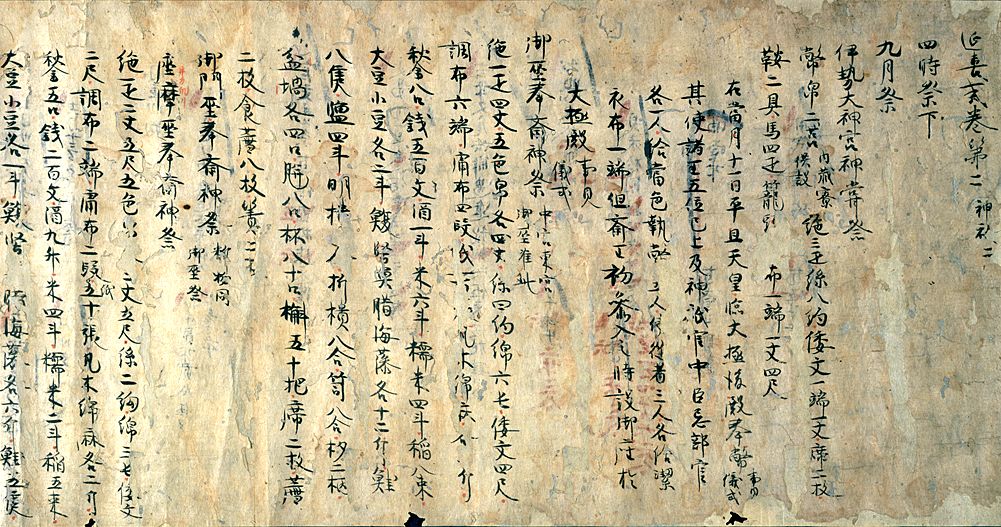 延喜式巻第二 神祇二
四時祭下
九月祭
伊勢大神宮神嘗祭
幣帛二筥 内蔵寮供設 絁三疋絲八約倭文一端一丈席二枚
鞍二具馬四疋籠頭 布一端一丈四尺
右當月十一日平旦天皇臨大極後殿奉幣 事見儀式
其使諸王五位已上及神祇官中臣忌部官
各一人給當色執幣 三人使従者三人各給潔
衣布一端但斎王初参入之時設御座於
大極殿 事見儀式
御巫奉斎神祭 中宮東宮御巫准此
絁一疋四丈五色帛各四丈絲四約綿六屯倭文四尺
調布六端庸布四段 凡木綿 斤
秋金八口銭五百文酒一斗米六斗糯米四斗稲八束
大豆小豆各二斗鰒堅魚腊海藻各十二斤鮭
八隻塩四斗明 折横八合笥八合杓二柄
盆堝各四口 八口杯八十口槲五十把席二枚薦
二枚食薦八枚簀二
御門巫奉斎神祭
座摩巫奉斎神祭 御巫祭
絁一疋二丈五尺五色 二丈五尺絲二約綿三屯倭文
二尺調布二端庸布二段紙五十張凡木綿麻各二斤
秋金五口銭二百文酒九升米四斗糯米二斗稲五束
大豆小豆各一斗鰒堅 腊海藻各六斤鮭五隻